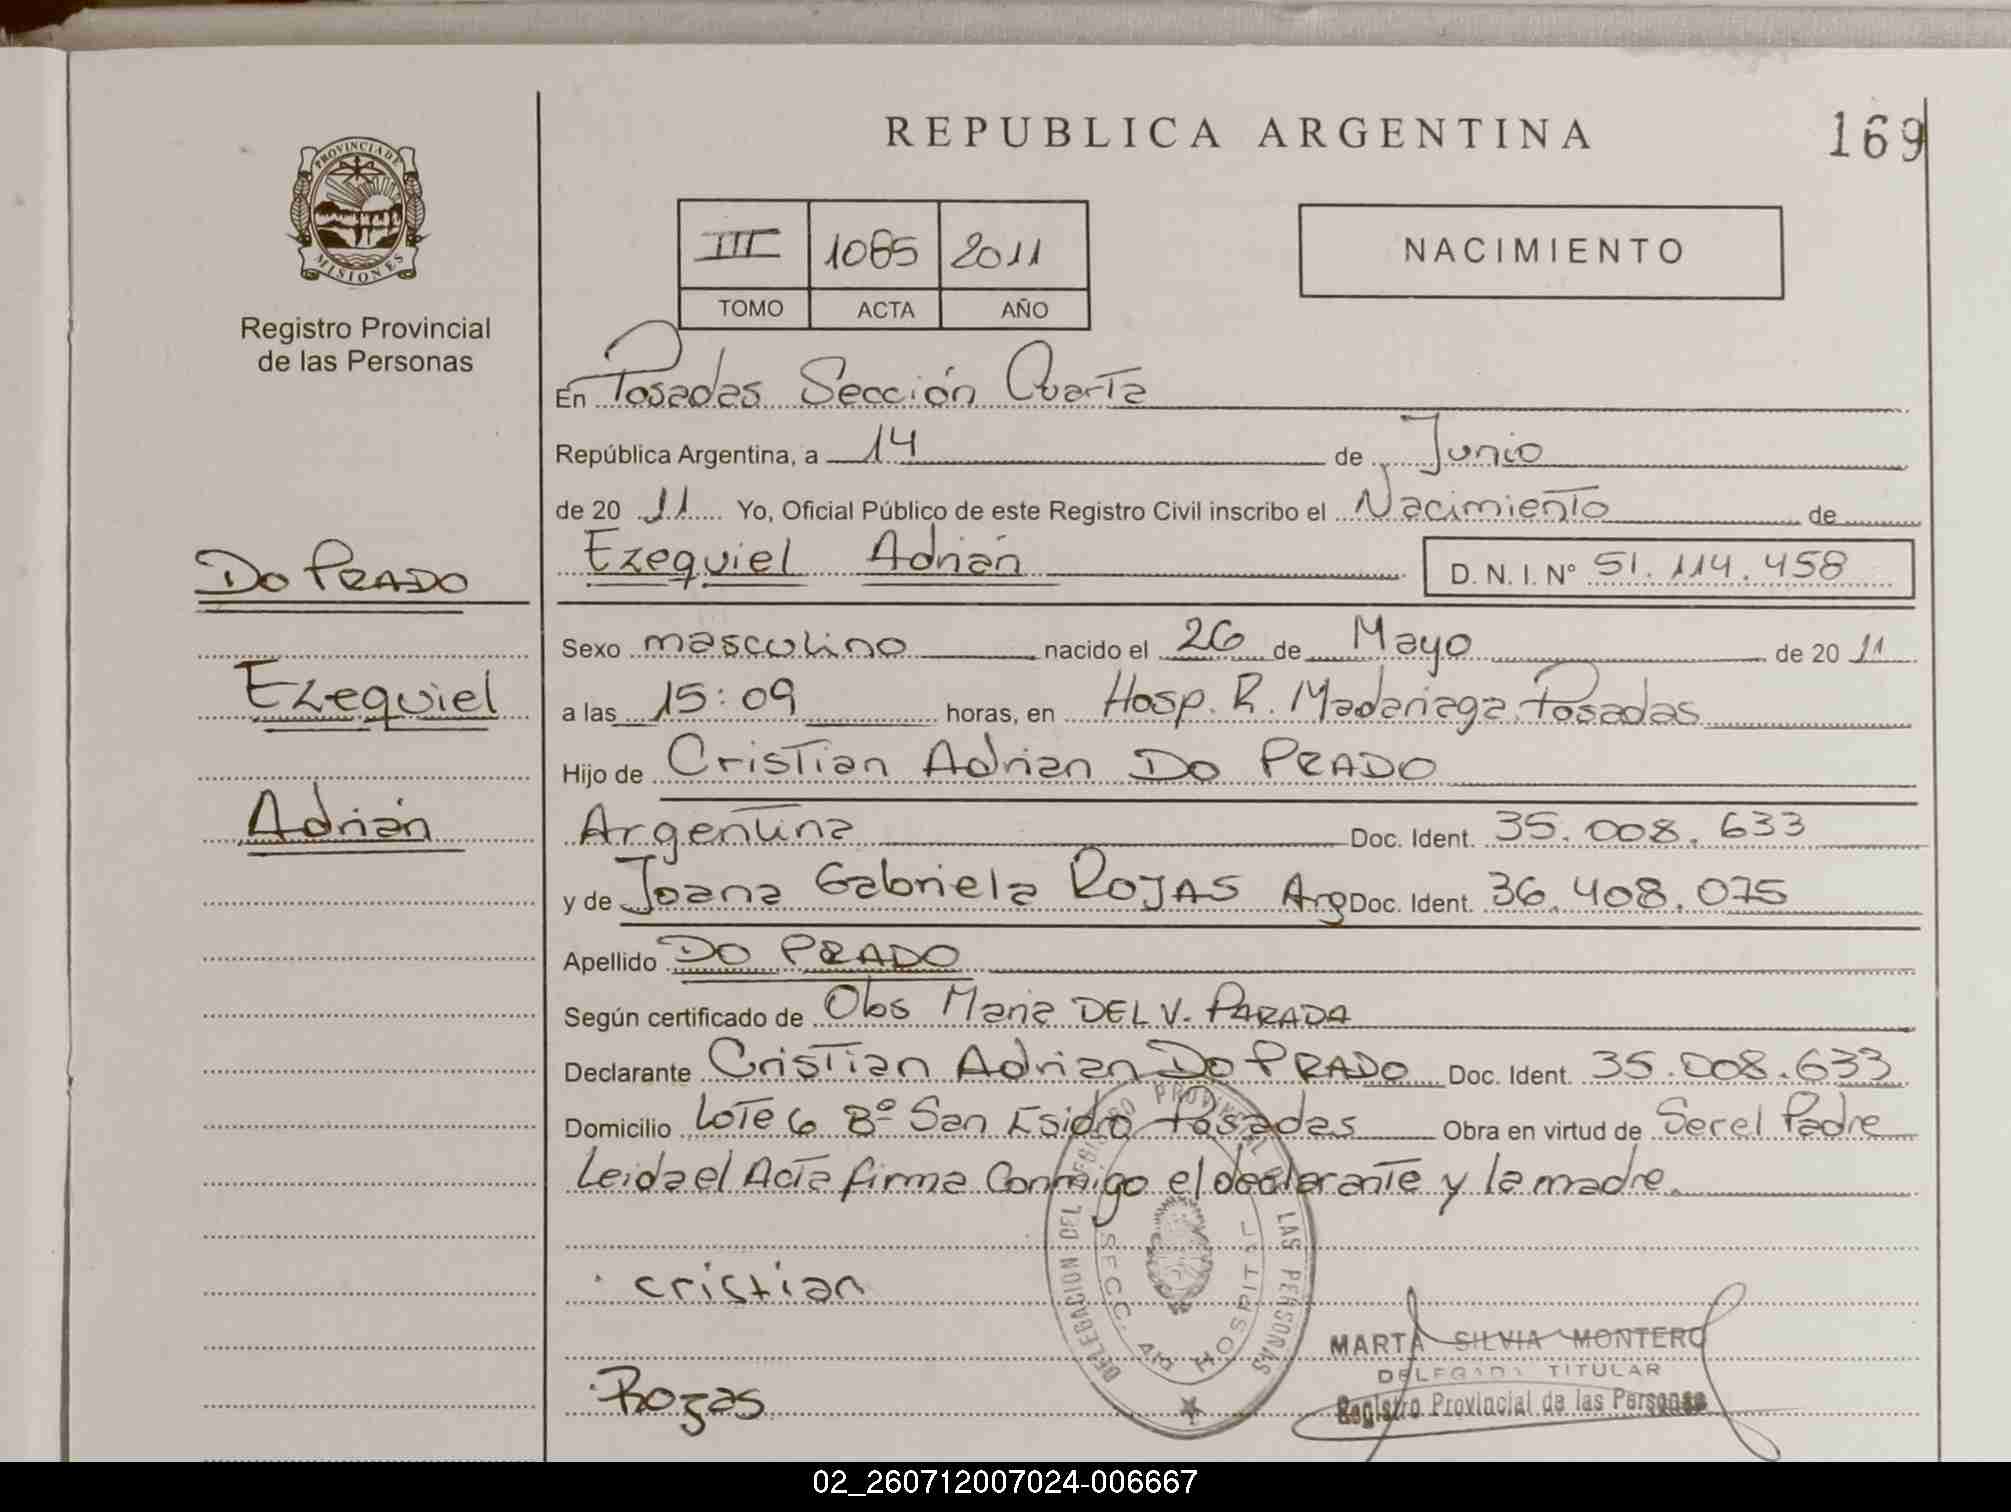 REPUBLICA ARGENTINA
169
PROVINCIA DE
MISIONES
Registro Provincial
de las Personas
III 1085 2011
TOMO ACTA AÑO
NACIMIENTO
En Posadas Sección Cuarta
República Argentina, a 14 de Junio
de 20 11 Yo, Oficial Público de este Registro Civil inscribo el Nacimiento de
Ezequiel Adrián D. N. I. N° 51.114.458
DO PRADO
Ezequiel
Adrián
Sexo masculino nacido el 26 de Mayo de 20 11
a las 15:09 horas, en Hosp. R. Madariaga, Posadas
Hijo de Cristian Adrian DO PRADO
Argentina Doc. Ident. 35.008.633
y de Joana Gabriela ROJAS Arg Doc. Ident. 36.408.075
Apellido DO PRADO
Según certificado de Obs Maria DEL V. PARADA
Declarante Cristian Adrian DO PRADO Doc. Ident. 35.008.633
Domicilio Lote 6 Bº San Isidro Posadas Obra en virtud de Ser el Padre
Leida el Acta firma Conmigo el declarante y la madre.
cristian
Rozas
DELEGACION DEL REGISTRO PROVINCIAL DE LAS PERSONAS
SECC. 4ta HOSPITAL
MARTA SILVIA MONTERO
DELEGADA TITULAR
Registro Provincial de las Personas
02_260712007024-006667